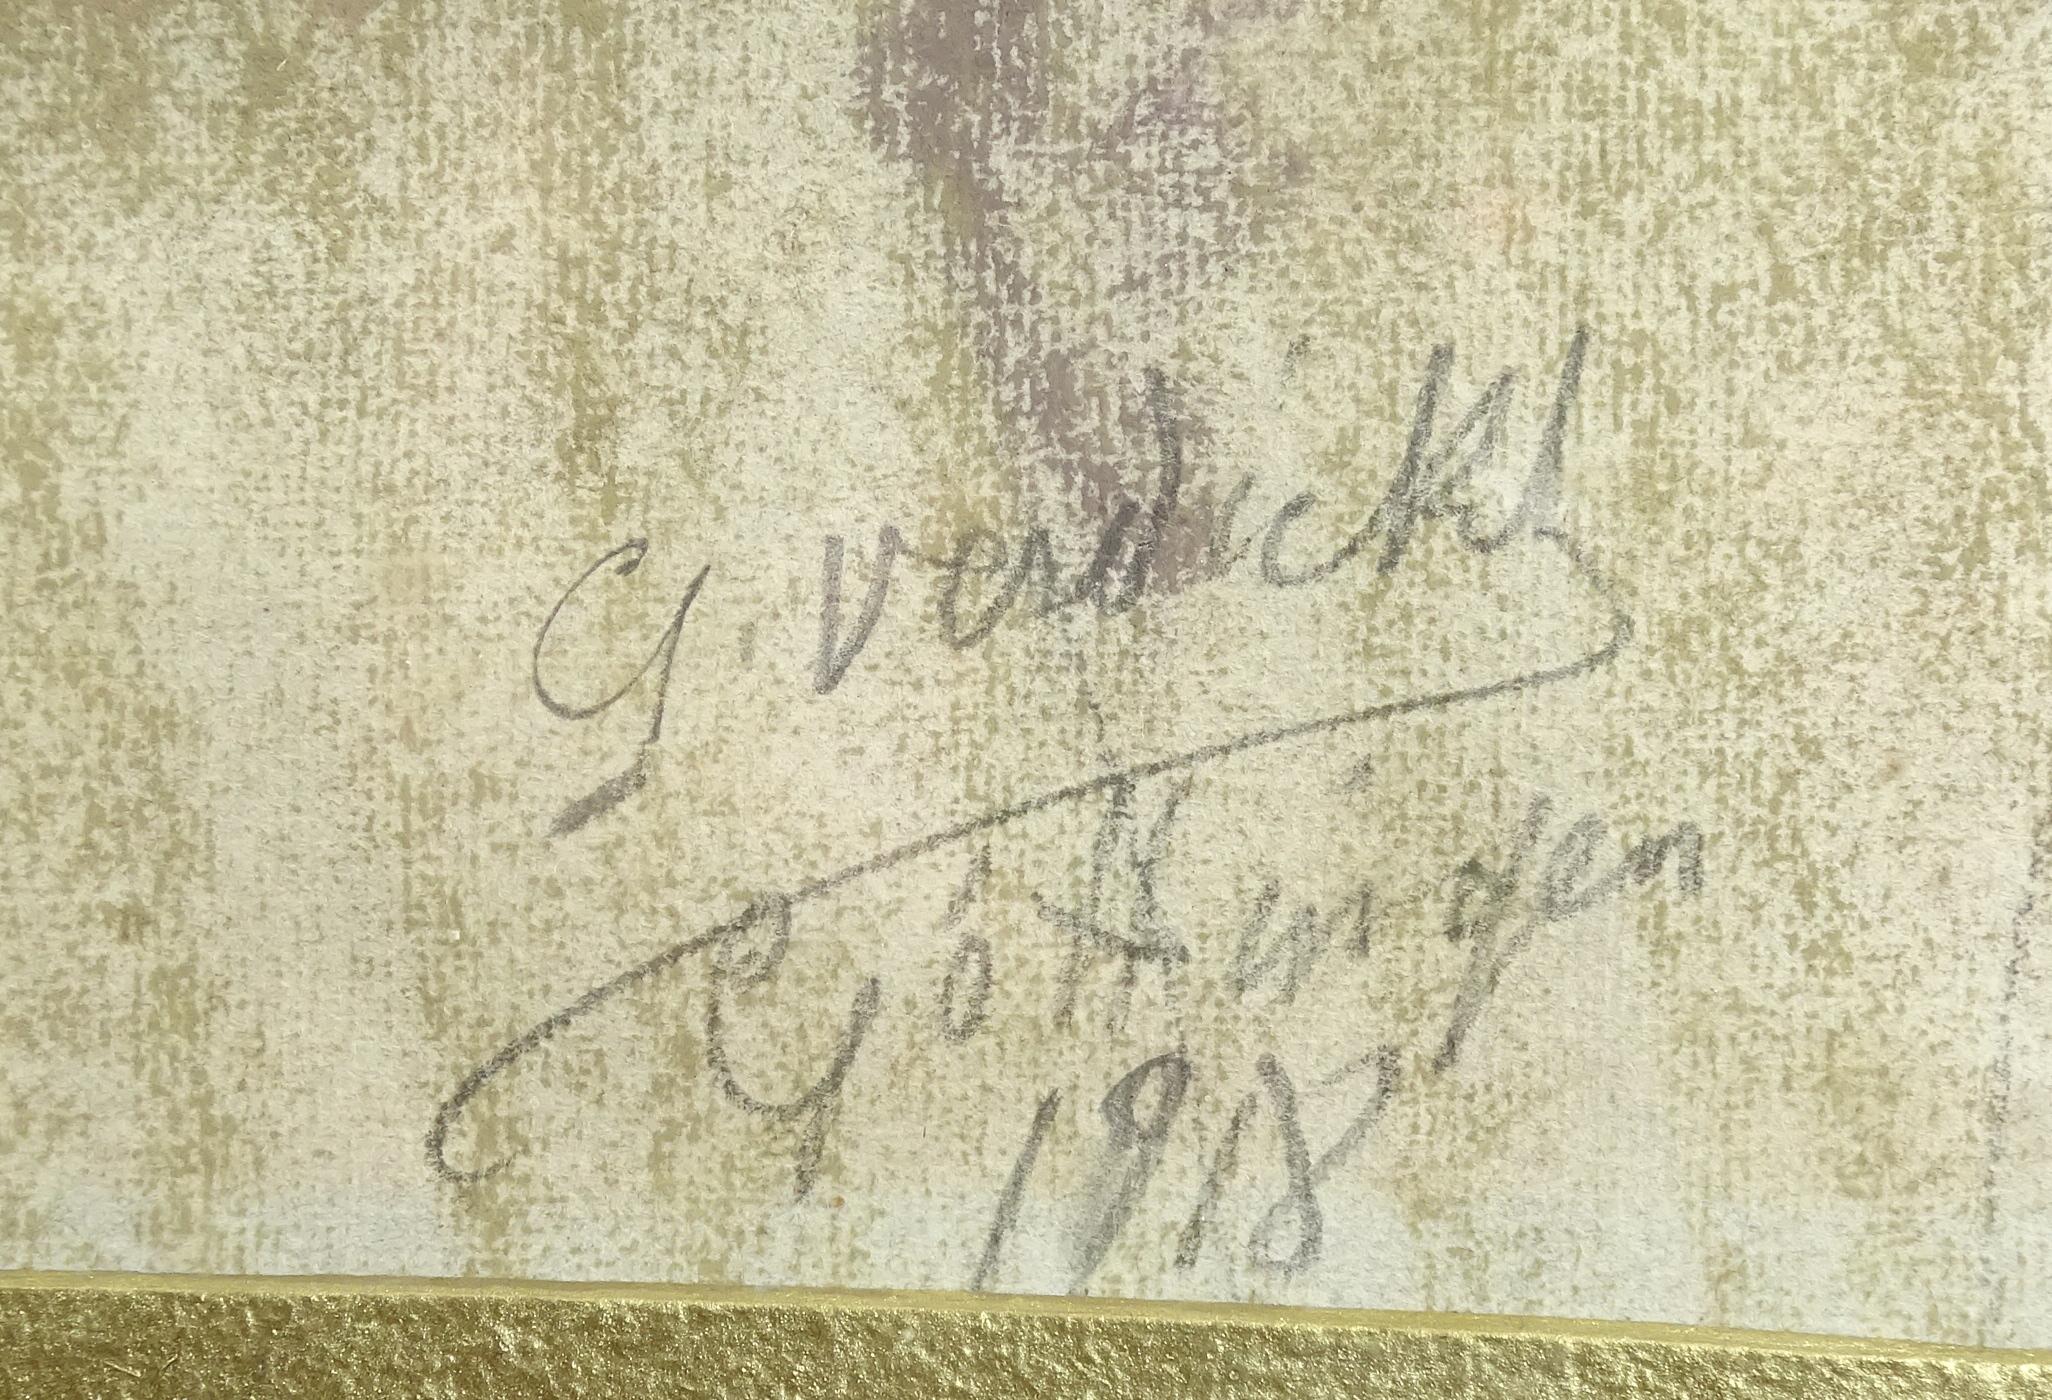 G. Verdickt
Göttingen
1918